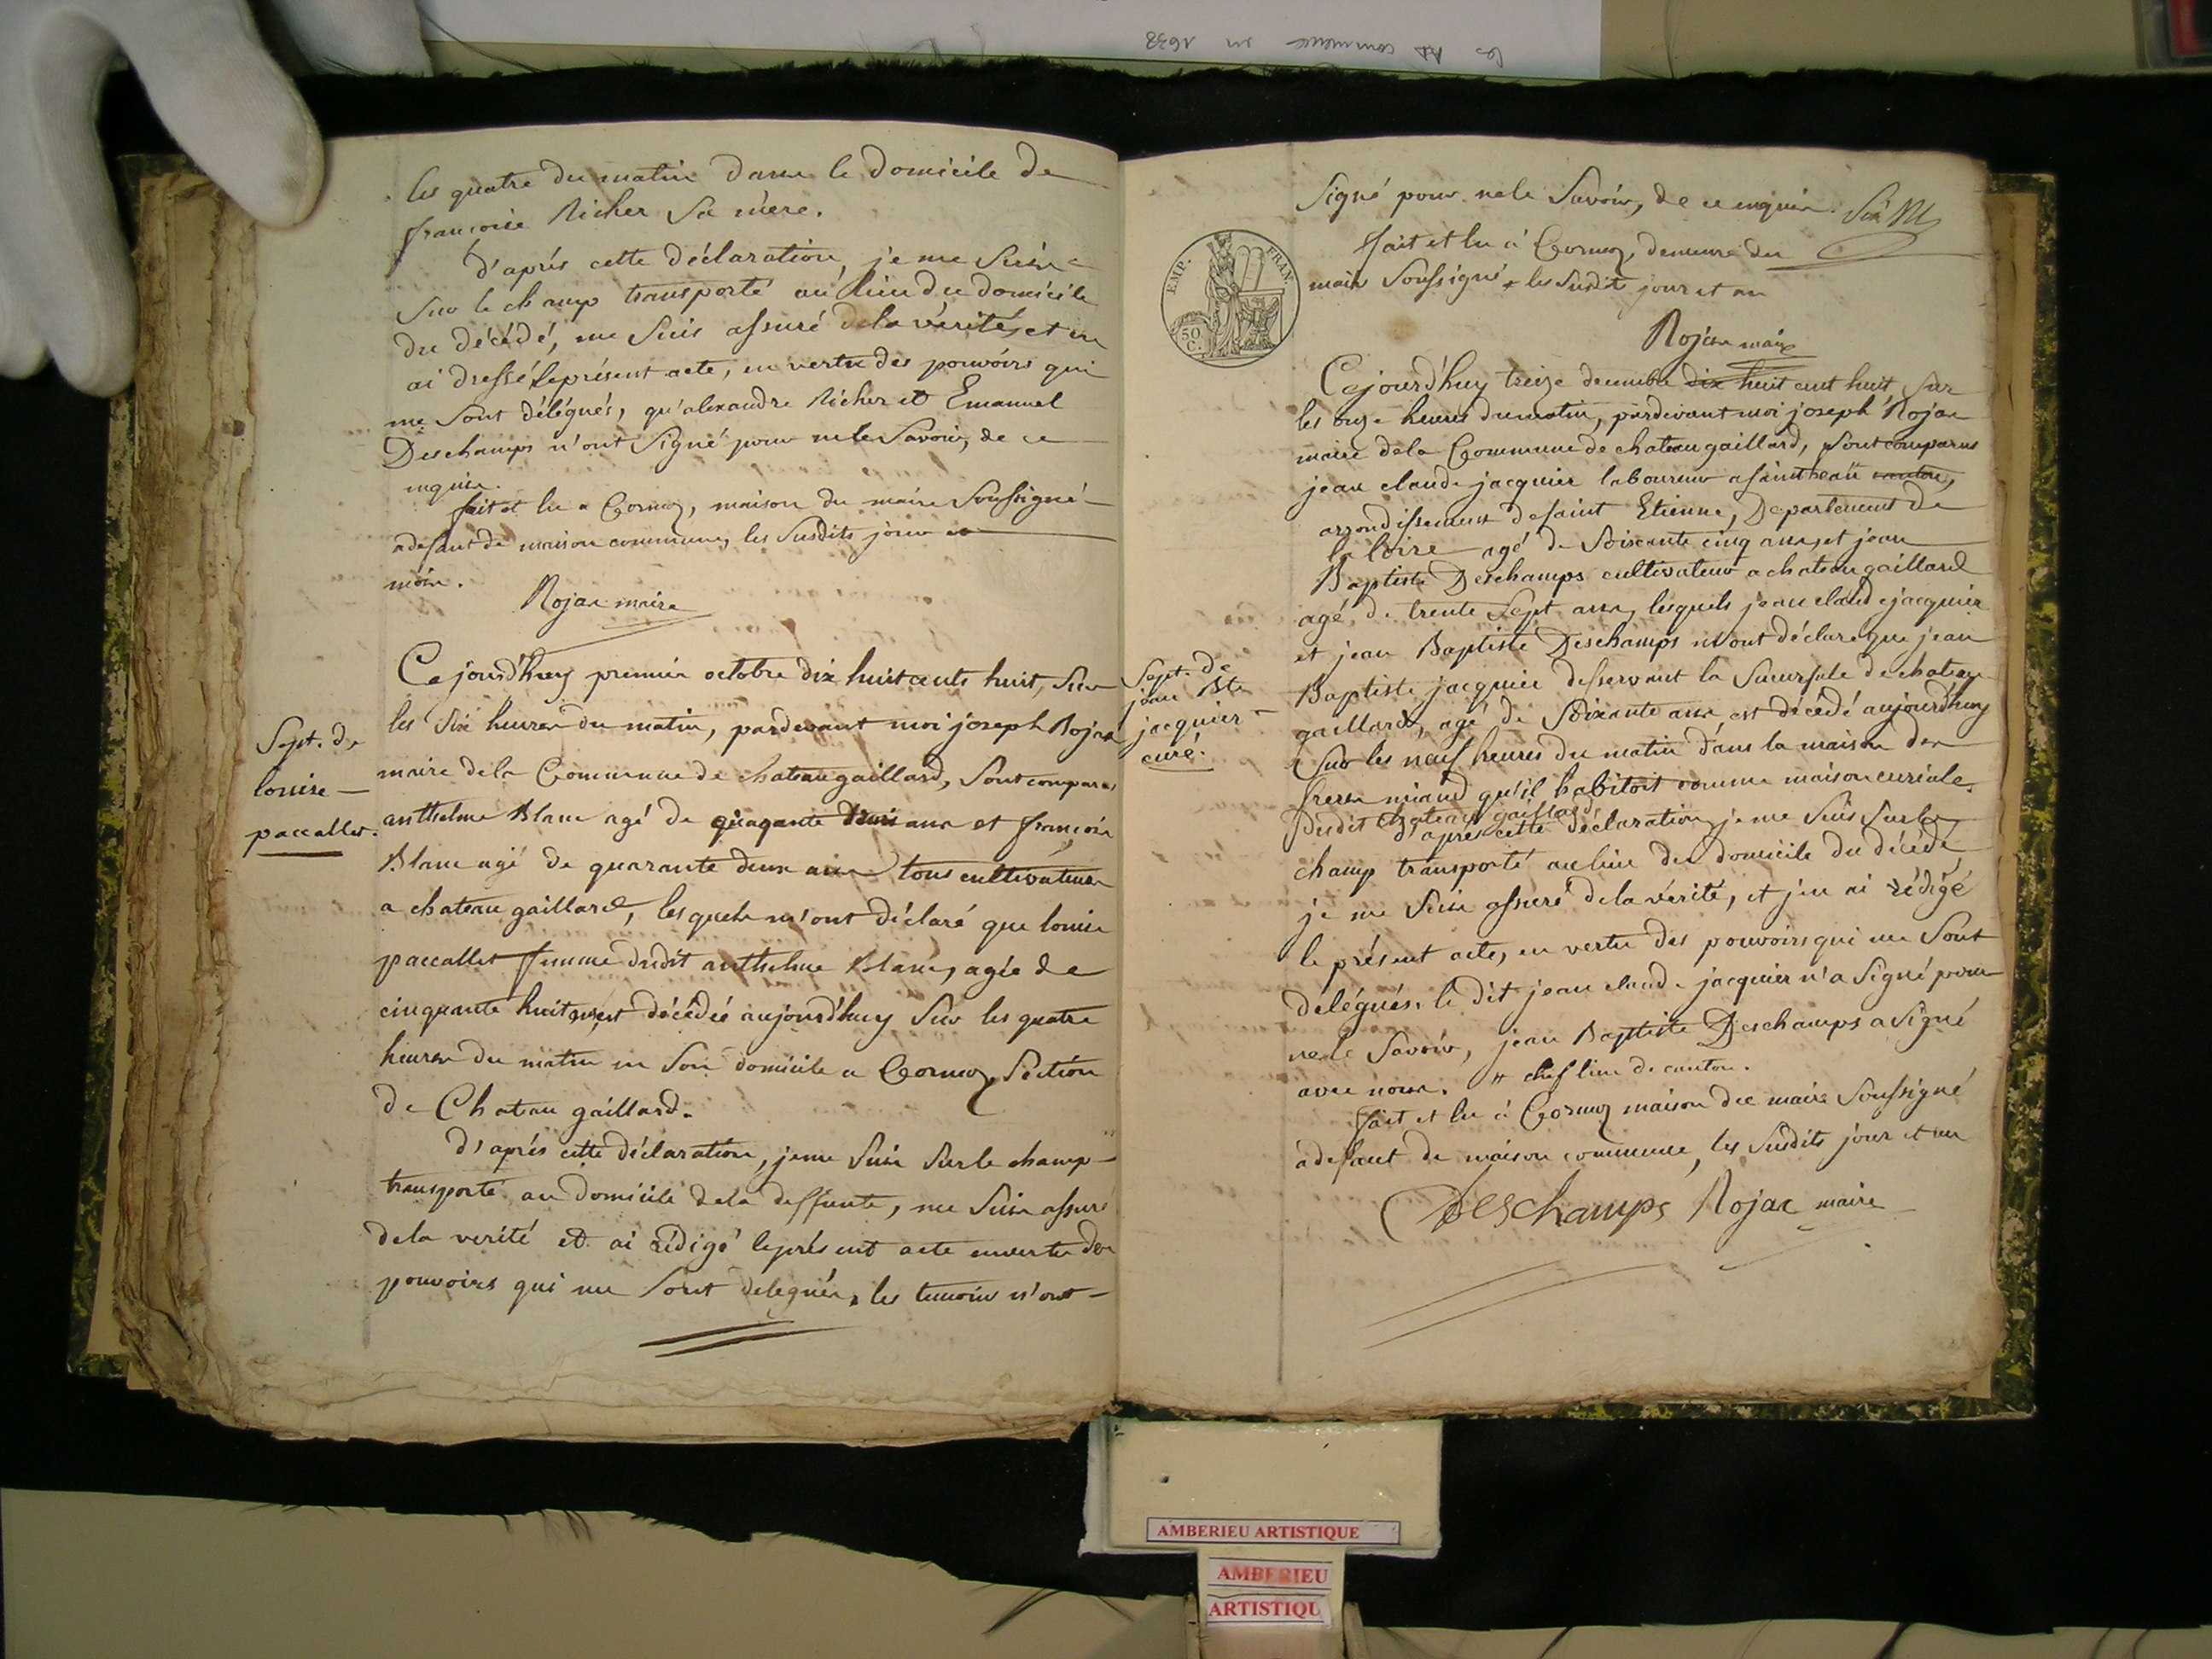 les Ad commence en 1638
les quatre du matin dans le domicile de
francoise Richer Sa mere.
d'aprés cette déclaration, je me Suis
Sur le champ transporté au lieu du domicile
du décédé, me Suis assuré dela vérité, et en
ai dressé le présent acte, en vertu des pouvoirs qui
me sont délégués, qu'alexandre Richer et Emanuel
Deschamps n'ont Signé pour ne le Savoir, de ce
enquis.
fait et lu a Cormoz, maison du maire Soussigné
a defaut de maison commune, les Susdits jour et
mois.
Rojat maire
Cejourd'huy premier octobre dix huit cents huit, Sur
les Six heures du matin, pardevant moi joseph Rojat
maire dela Commune de chateaugaillard, Sont comparus
anthelme Blanc agé de quarante ans et francois
Blanc agé de quarante deux ans tous cultivateurs
a chateau gaillard, lesquels m'ont déclaré que louise
paccallet femme dudit anthelme Blanc, agée de
cinquante huit ans est décédée aujourd'huy Sur les quatre
heures du matin en Son domicile a Cormoz, Section
de Chateau gaillard.
d'aprés cette déclaration, je me Suis Sur le champ
transporté au domicile dela deffunte, me Suis assuré
dela verité et ai rédigé le présent acte en vertu des
pouvoirs qui me Sont delegués, les temoins n'ont
Sept. de
louise
paccallet.
Signé pour ne le Savoir, de ce enquis.
fait et lu à Cormoz, demeure du
maire Soussigné les Susdits jour et an
Rojat maire
EMP. FRAN.
50 C.
Sept. de
jean Bte
jacquier
curé.
Cejourd'huy treize decembre dix huit cent huit, Sur
les onze heures du matin, pardevant moi joseph Rojat
maire dela Commune de chateaugaillard, Sont comparus
jean claude jacquier laboureur a saint hean canton,
arrondissement de saint Etienne, Departement de
la loire agé de Soixante cinq ans, et jean
Baptiste Deschamps cultivateur a chateau gaillard
agé de trente Sept ans, lesquels jean claude jacquier
et jean Baptiste Deschamps m'ont déclaré que jean
Baptiste jacquier desservant la Sucursale de chateau
gaillard, agé de Soixante ans est décédé aujourd'huy
Sur les neuf heures du matin dans la maison des
freres miand qu'il habitoit comme maison curiale
dudit Chateau gaillard
d'aprés cette déclaration, je me Suis Sur le
champ transporté au lieu du domicile du décédé
je me Suis assuré dela vérité, et j'en ai rédigé
le présent acte, en vertu des pouvoirs qui me Sont
delégués. le dit jean claude jacquier n'a Signé pour
ne le Savoir, jean Baptiste Deschamps a Signé
avec nous. # chef lieu de canton.
fait et lu à Cormoz maison du maire Soussigné
a defaut de maison commune, les Susdits jour et an
Deschamps Rojat maire
AMBERIEU ARTISTIQUE
AMBERIEU
ARTISTIQU